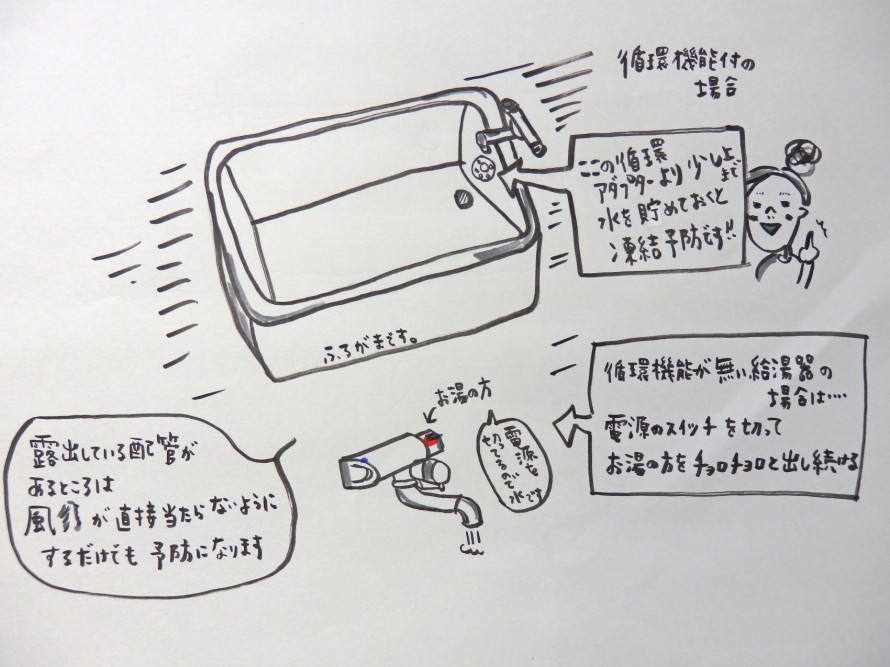 循環機能付の
場合
ここの循環
アダプターより少し上まで
水を貯めておくと
凍結予防です!!
ふろがまです。
循環機能が無い給湯器の
場合は‥‥
電源のスイッチを切って
お湯の方をチョロチョロと出し続ける
お湯の方
電源を
切ってるので
水です
露出している配管が
あるところは
風が直接当たらないように
するだけでも予防になります